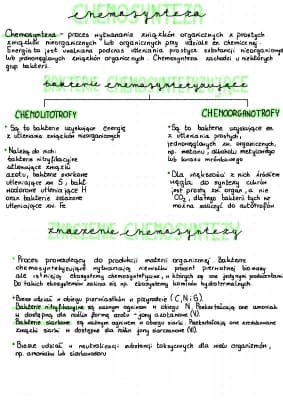 CHEMOSYNTEZA
chemosynteza
Chemosynteza - proces wytwarzania związków organicznych z prostych
związków nieorganicznych lub organicznych przy udziale en. chemicznej.
Energia ta jest uwalniana podczas utleniania prostych substancji nieorganicznych
lub jednowęglowych związków organicznych. Chemosynteza zachodzi u niektórych
grup bakterii.
bakterie chemosyntetyzujące
CHEMOLITOTROFY
• Są to bakterie uzyskujące energię
z utleniania związków nieorganicznych
• Należą do nich:
bakterie nitryfikacyjne
utleniające związki
azotu, bakterie siarkowe
utleniające zw. S, bakt.
wodorowe utleniające H
oraz bakterie żelazowe
utleniające zw. Fe
CHEMOORGANOTROFY
• Są to bakterie uzyskujące en.
z utleniania prostych,
jednowęglowych zw. organicznych,
np. metanu, alkoholu metylowego
lub kwasu mrówkowego
• Dla większości z nich źródłem
węgla do syntezy cukrów
jest prosty zw. organ. a nie
CO₂, dlatego bakterii tych nie
można zaliczyć do autotrofów
ZNACZENIE CHEMOSYNTEZY
znaczenie chemosyntezy
• Proces prowadzący do produkcji materii organicznej. Bakterie
chemosyntetyzujące wytwarzają niewielki procent pierwotnej biomasy
ale istnieją ekosystemy chemosyntetyczne, w których są one jedynymi producentami
Do takich ekosystemów zalicza się np. ekosystemy kominów hydrotermalnych
• Bierze udział w obiegu pierwiastków w przyrodzie (C, N i S).
Bakterie nitryfikacyjne są ważnym ogniwem w obiegu N. Przekształcają one amoniak
w dostępną dla roślin formę azotu - jony azotanowe (V).
Bakterie siarkowe są ważnym ogniwem w obiegu siarki. Przekształcają one zredukowane
związki siarki w dostępne dla roślin jony siarczanowe (VI).
• Bierze udział w neutralizacji substancji toksycznych dla wielu organizmów,
np. amoniaku lub siarkowodoru